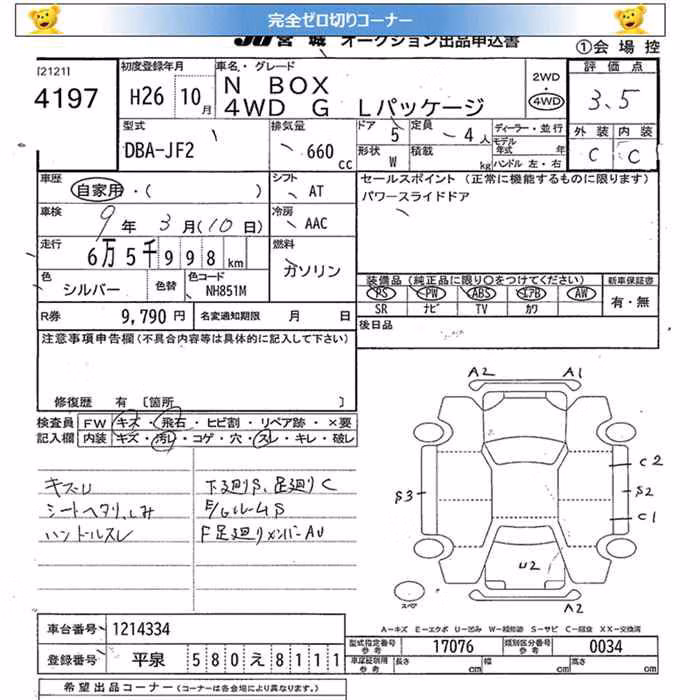 完全ゼロ切りコーナー
JU 宮城 オークション出品申込書
①会場控
[2121]
4197
初度登録年月
H26 10月
車名・グレード
N BOX
4WD G Lパッケージ
2WD
・
4WD
評価点
3.5
外装 内装
C C
型式
DBA-JF2
排気量
660 cc
ドア 5 定員 4人
形状 W 積載 kg
ディーラー・並行
モデル年式 年
ハンドル 左・右
車歴
自家用・( )
シフト
AT
セールスポイント (正常に機能するものに限ります)
パワースライドドア
車検
9年 3月(10日)
冷房
AAC
走行
6万5千998km
燃料
ガソリン
色
シルバー
色替
色コード
NH851M
装備品(純正品に限り○をつけてください)
PS PW ABS エアB AW
SR ナビ TV カワ
新車保証書
有・無
R券 9,790円
名変通知期限 月 日
後日品
注意事項申告欄(不具合内容等は具体的に記入して下さい)
修復歴 有 〔箇所 〕
検査員記入欄
FW キズ・飛石・ヒビ割・リペア跡・×要
内装 キズ・汚レ・コゲ・穴・スレ・キレ・破レ
キズU
シートヘタリ、しみ
ハンドルスレ
下廻りS、足廻りC
F足廻りメンバーAU
A2 A1
C2
S3 S2
C1
U2
A2
スペア
A-キズ E-エクボ U-凹み W-補修跡 S-サビ C-腐食 XX-交換済
車台番号 1214334
型式指定番号 参考 17076
類別区分番号 参考 0034
登録番号 平泉 580 え 8111
車庫証明用 参考 長さ cm 幅 cm 高さ cm
希望出品コーナー (コーナーは各会場により異なります。)